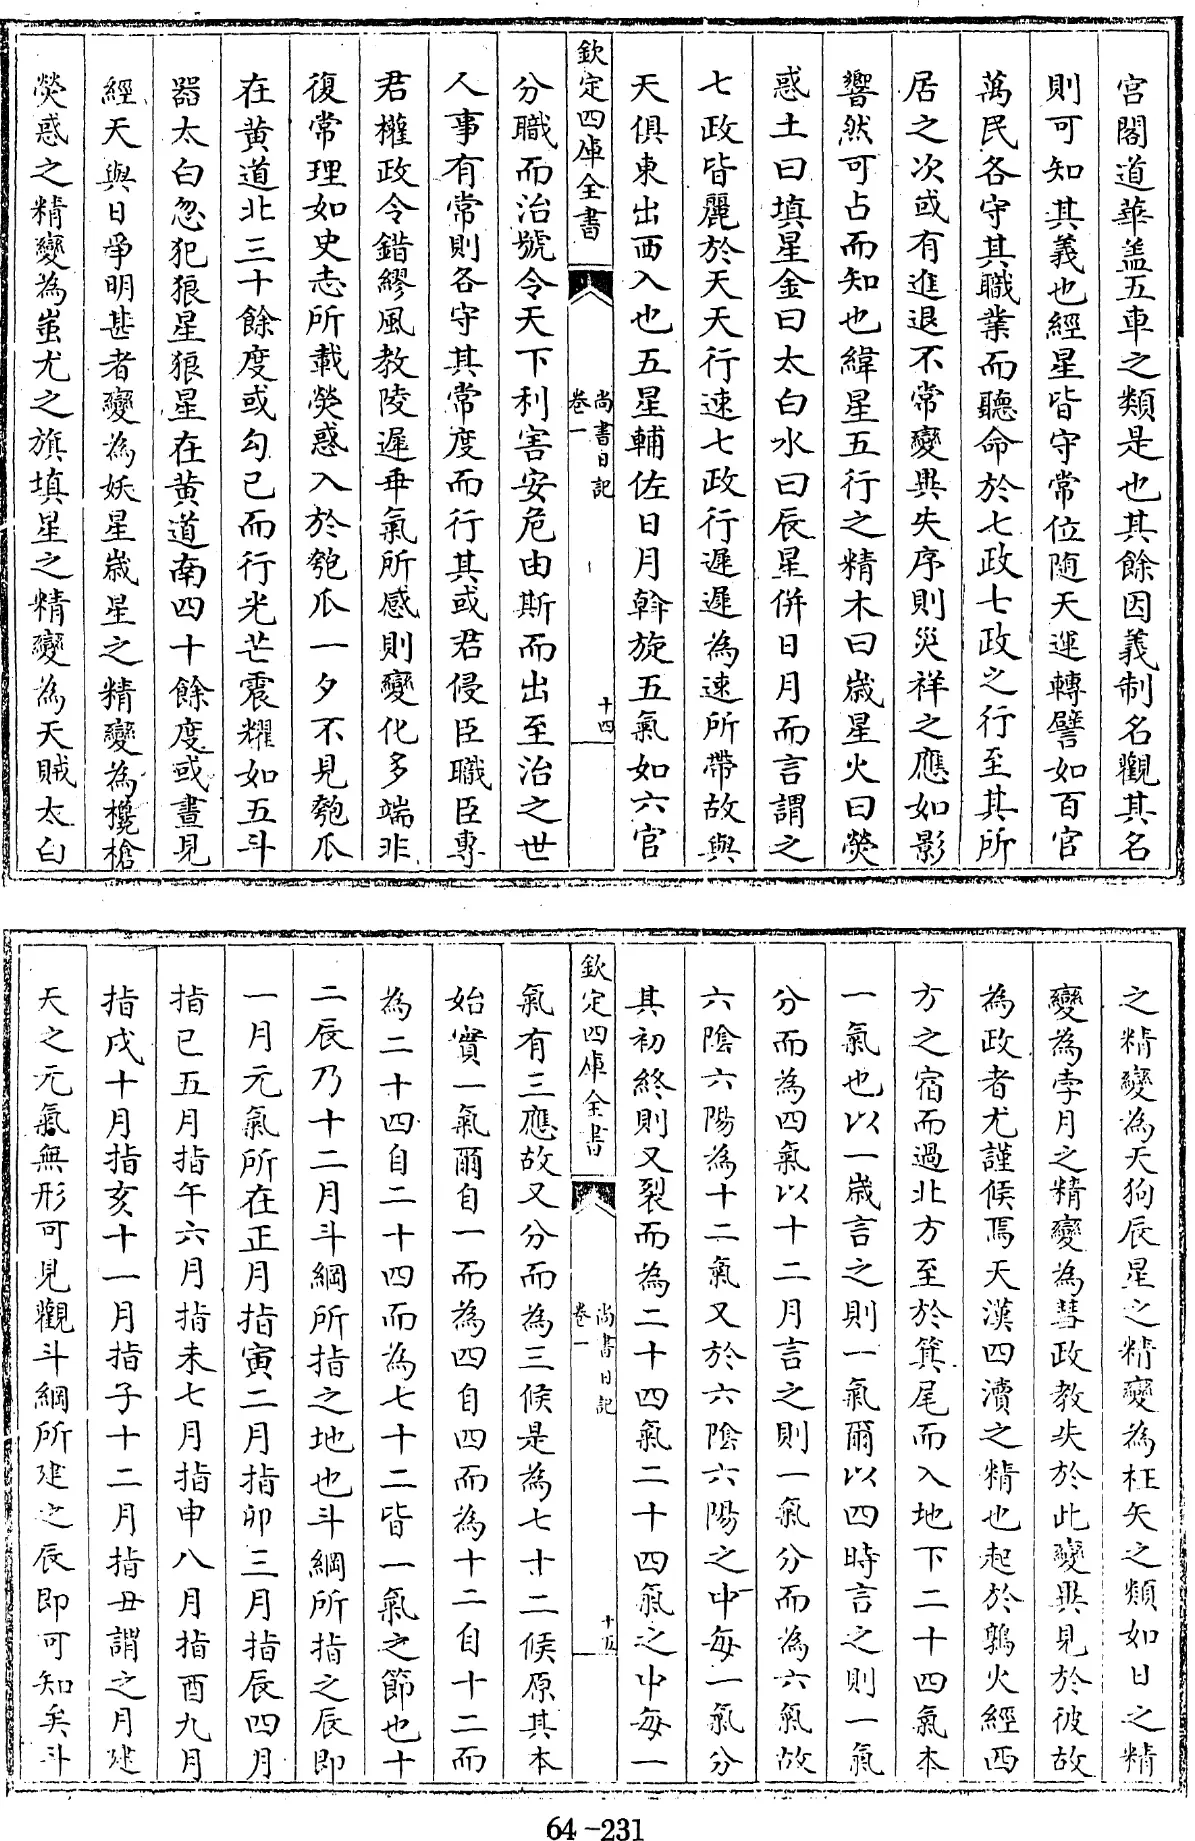 宮閣道華盖五車之類是也其餘因義制名觀其名
則可知其義也經星皆守常位随天運轉譬如百官
萬民各守其職業而聽命於七政七政之行至其所
居之次或有進退不常變異失序則災祥之應如影
響然可占而知也緯星五行之精木曰歳星火曰熒
惑土曰填星金曰太白水曰辰星併日月而言謂之
七政皆麗於天天行速七政行遲遲為速所帶故與
天俱東出西入也五星輔佐日月斡旋五氣如六官
欽定四庫全書
尚書日記
卷一
十四
分職而治號令天下利害安危由斯而出至治之世
人事有常則各守其常度而行其或君侵臣職臣專
君權政令錯繆風教陵遲乖氣所感則變化多端非
復常理如史志所載熒惑入於匏瓜一夕不見匏瓜
在黄道北三十餘度或勾已而行光芒震耀如五斗
器太白忽犯狼星狼星在黄道南四十餘度或晝見
經天與日爭明甚者變為妖星歳星之精變為欃槍
熒惑之精變為蚩尤之旗填星之精變為天賊太白
之精變為天狗辰星之精變為枉矢之類如日之精
變為孛月之精變為彗政教失於此變異見於彼故
為政者尤謹候焉天漢四瀆之精也起於鶉火經西
方之宿而過北方至於箕尾而入地下二十四氣本
一氣也以一歳言之則一氣爾以四時言之則一氣
分而為四氣以十二月言之則一氣分而為六氣故
六陰六陽為十二氣又於六陰六陽之中每一氣分
其初終則又裂而為二十四氣二十四氣之中每一
欽定四庫全書
尚書日記
卷一
十五
氣有三應故又分而為三候是為七十二候原其本
始實一氣爾自一而為四自四而為十二自十二而
為二十四自二十四而為七十二皆一氣之節也十
二辰乃十二月斗綱所指之地也斗綱所指之辰即
一月元氣所在正月指寅二月指卯三月指辰四月
指已五月指午六月指未七月指申八月指酉九月
指戌十月指亥十一月指子十二月指丑謂之月建
天之元氣無形可見觀斗綱所建之辰即可知矣斗
64-231